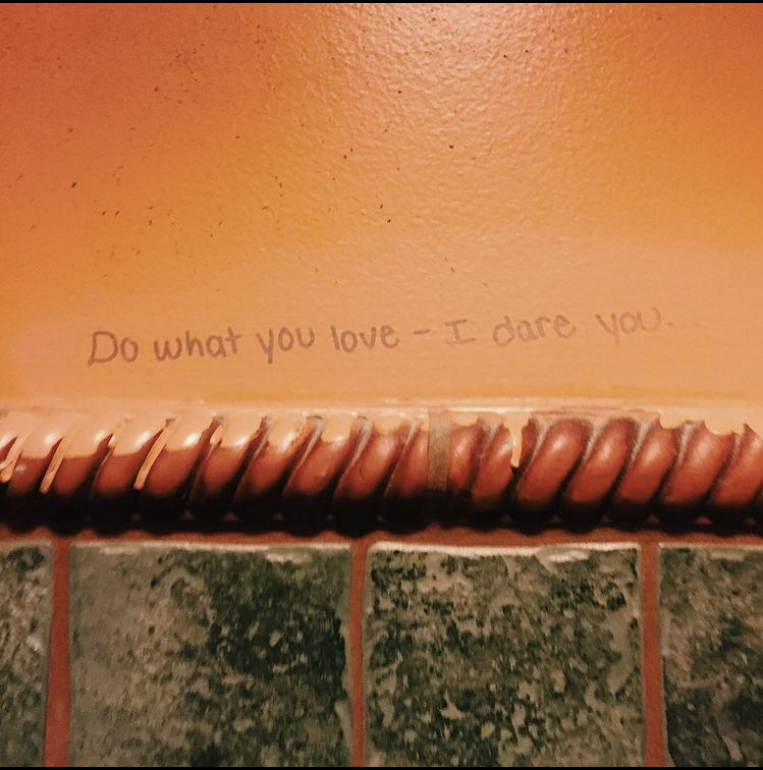 Do what you love - I dare you...